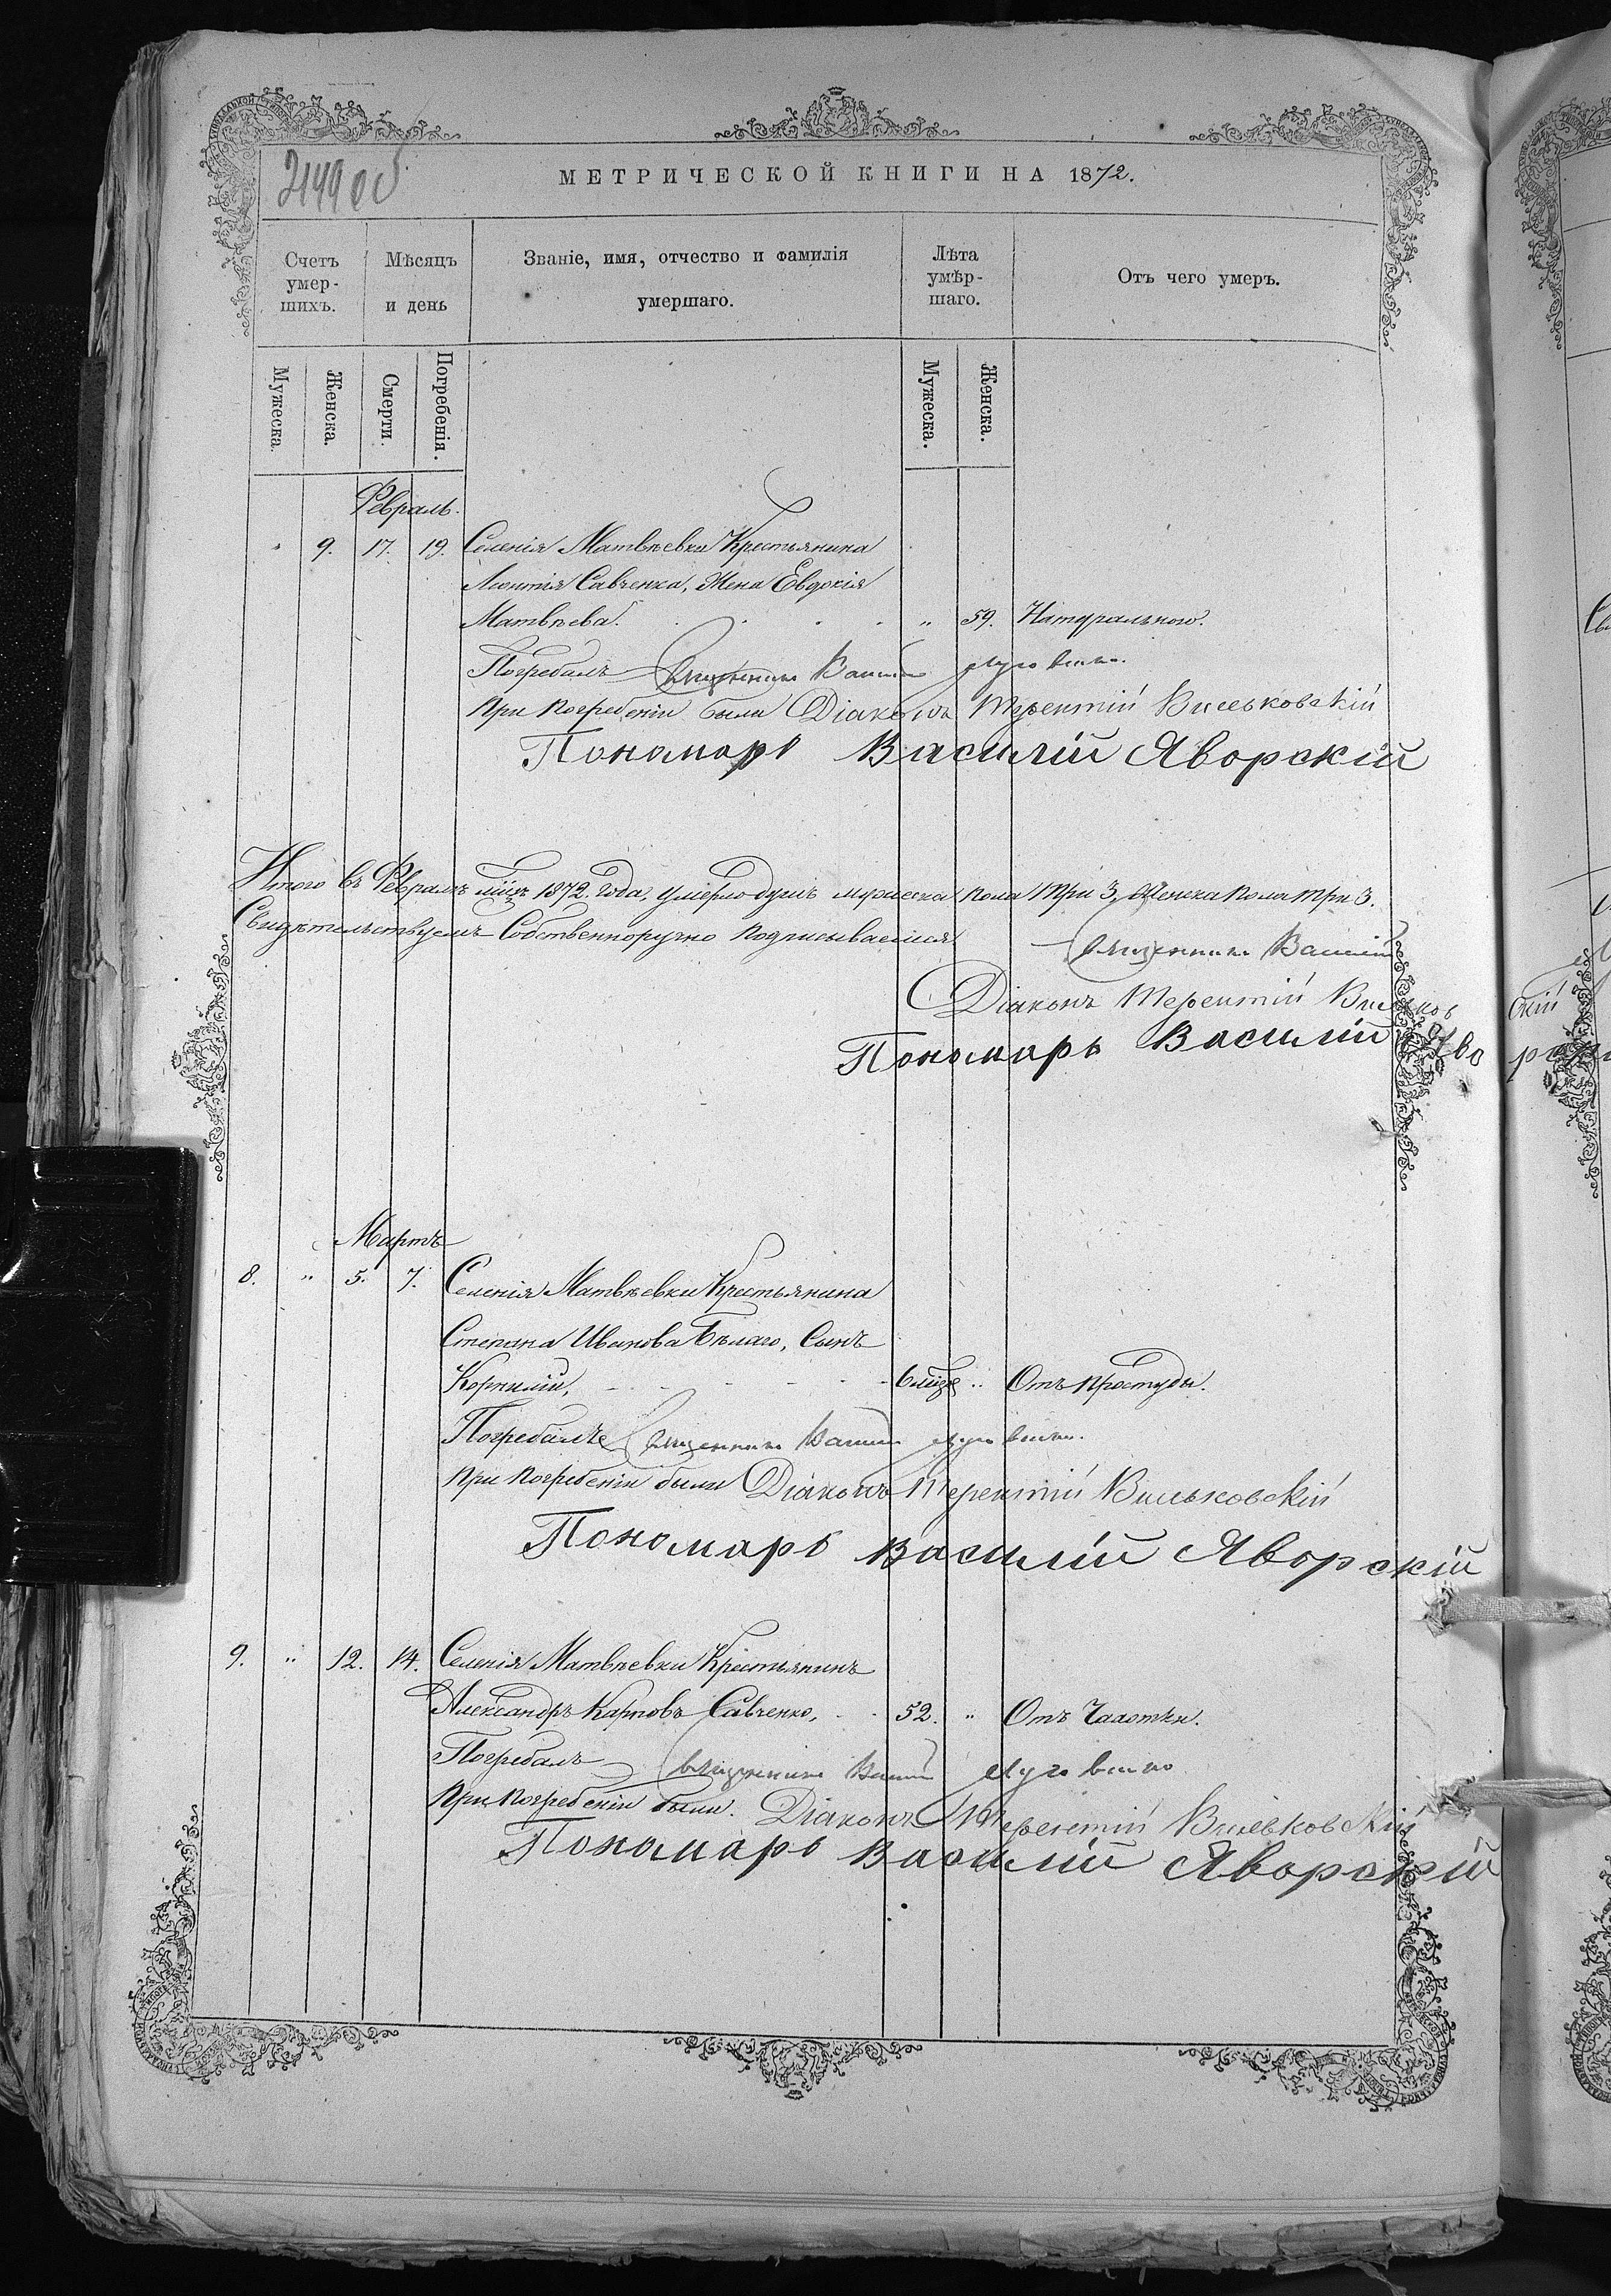 2149 об
МЕТРИЧЕСКОЙ КНИГИ НА 1872.
Счетъ умер- шихъ.
Мѣсяцъ и день
Званіе, имя, отчество и фамилія умершаго.
Лѣта умѣр- шаго.
Отъ чего умеръ.
Мужеска.
Женска.
Смерти.
Погребенія.
Мужеска.
Женска.
Февраль.
9. 17. 19. Селенія Матвѣевки Крестьянина
Леонтія Савченка, Жена Евдокія
Матвѣева. „ 59. Натурально.
Погребалъ Священникъ Василій
При погребеніи были Діаконъ Терентій Вильковскій
Пономарь Василій Яворскій
Итого въ Февралѣ мѣцѣ 1872 года, умерло душъ мужеска пола три 3, Женска пола три 3.
Свидѣтельствуемъ Собственноручно подписываемся
Священникъ Василій
Діаконъ Терентій Вильков скій
Пономарь Василій Яво рск
Мартъ
8. „ 5. 7. Селенія Матвѣевки Крестьянина
Степана Иванова Бѣлаго, Сынъ
Корнилій, 6 мѣцъ „ Отъ простуды.
Погребалъ Священникъ Василій
При погребеніи были Діаконъ Терентій Вильковскій
Пономарь Василій Яворскій
9. „ 12. 14. Селенія Матвѣевки Крестьянинъ
Александръ Карповъ Савченко, 52. „ Отъ Чахотки.
Погребалъ Священникъ Василій
При погребеніи были. Діаконъ Терентій Вильковскій
Пономарь Василій Яворскій